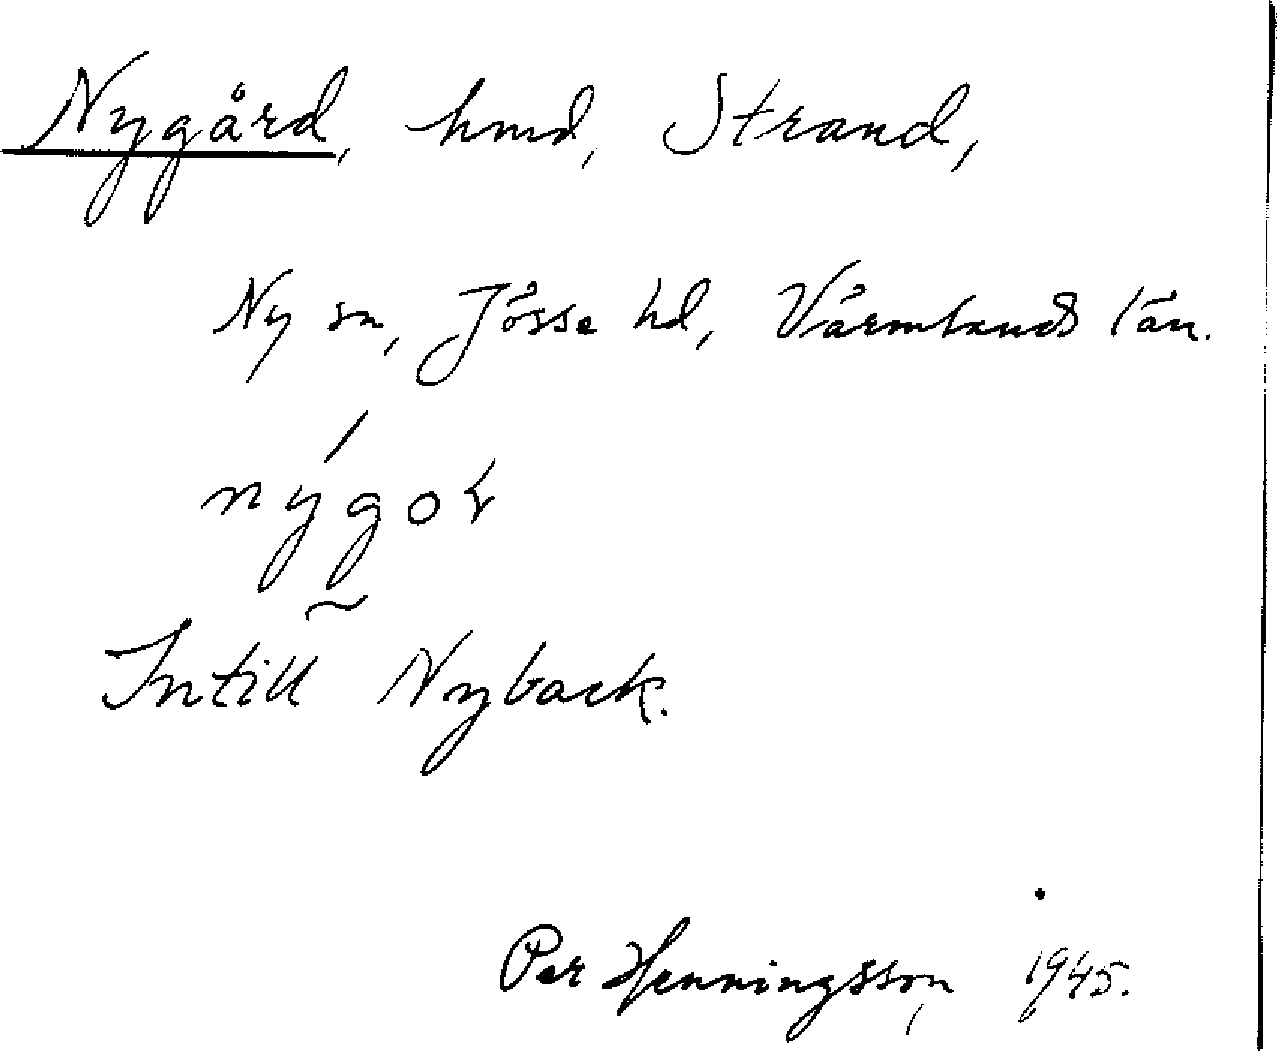 Nygård, hmd, Strand,
Ny sn, Jösse hd, Värmlands län.
nýgor
Intill Nyback.
Per Henningsson, 1945.